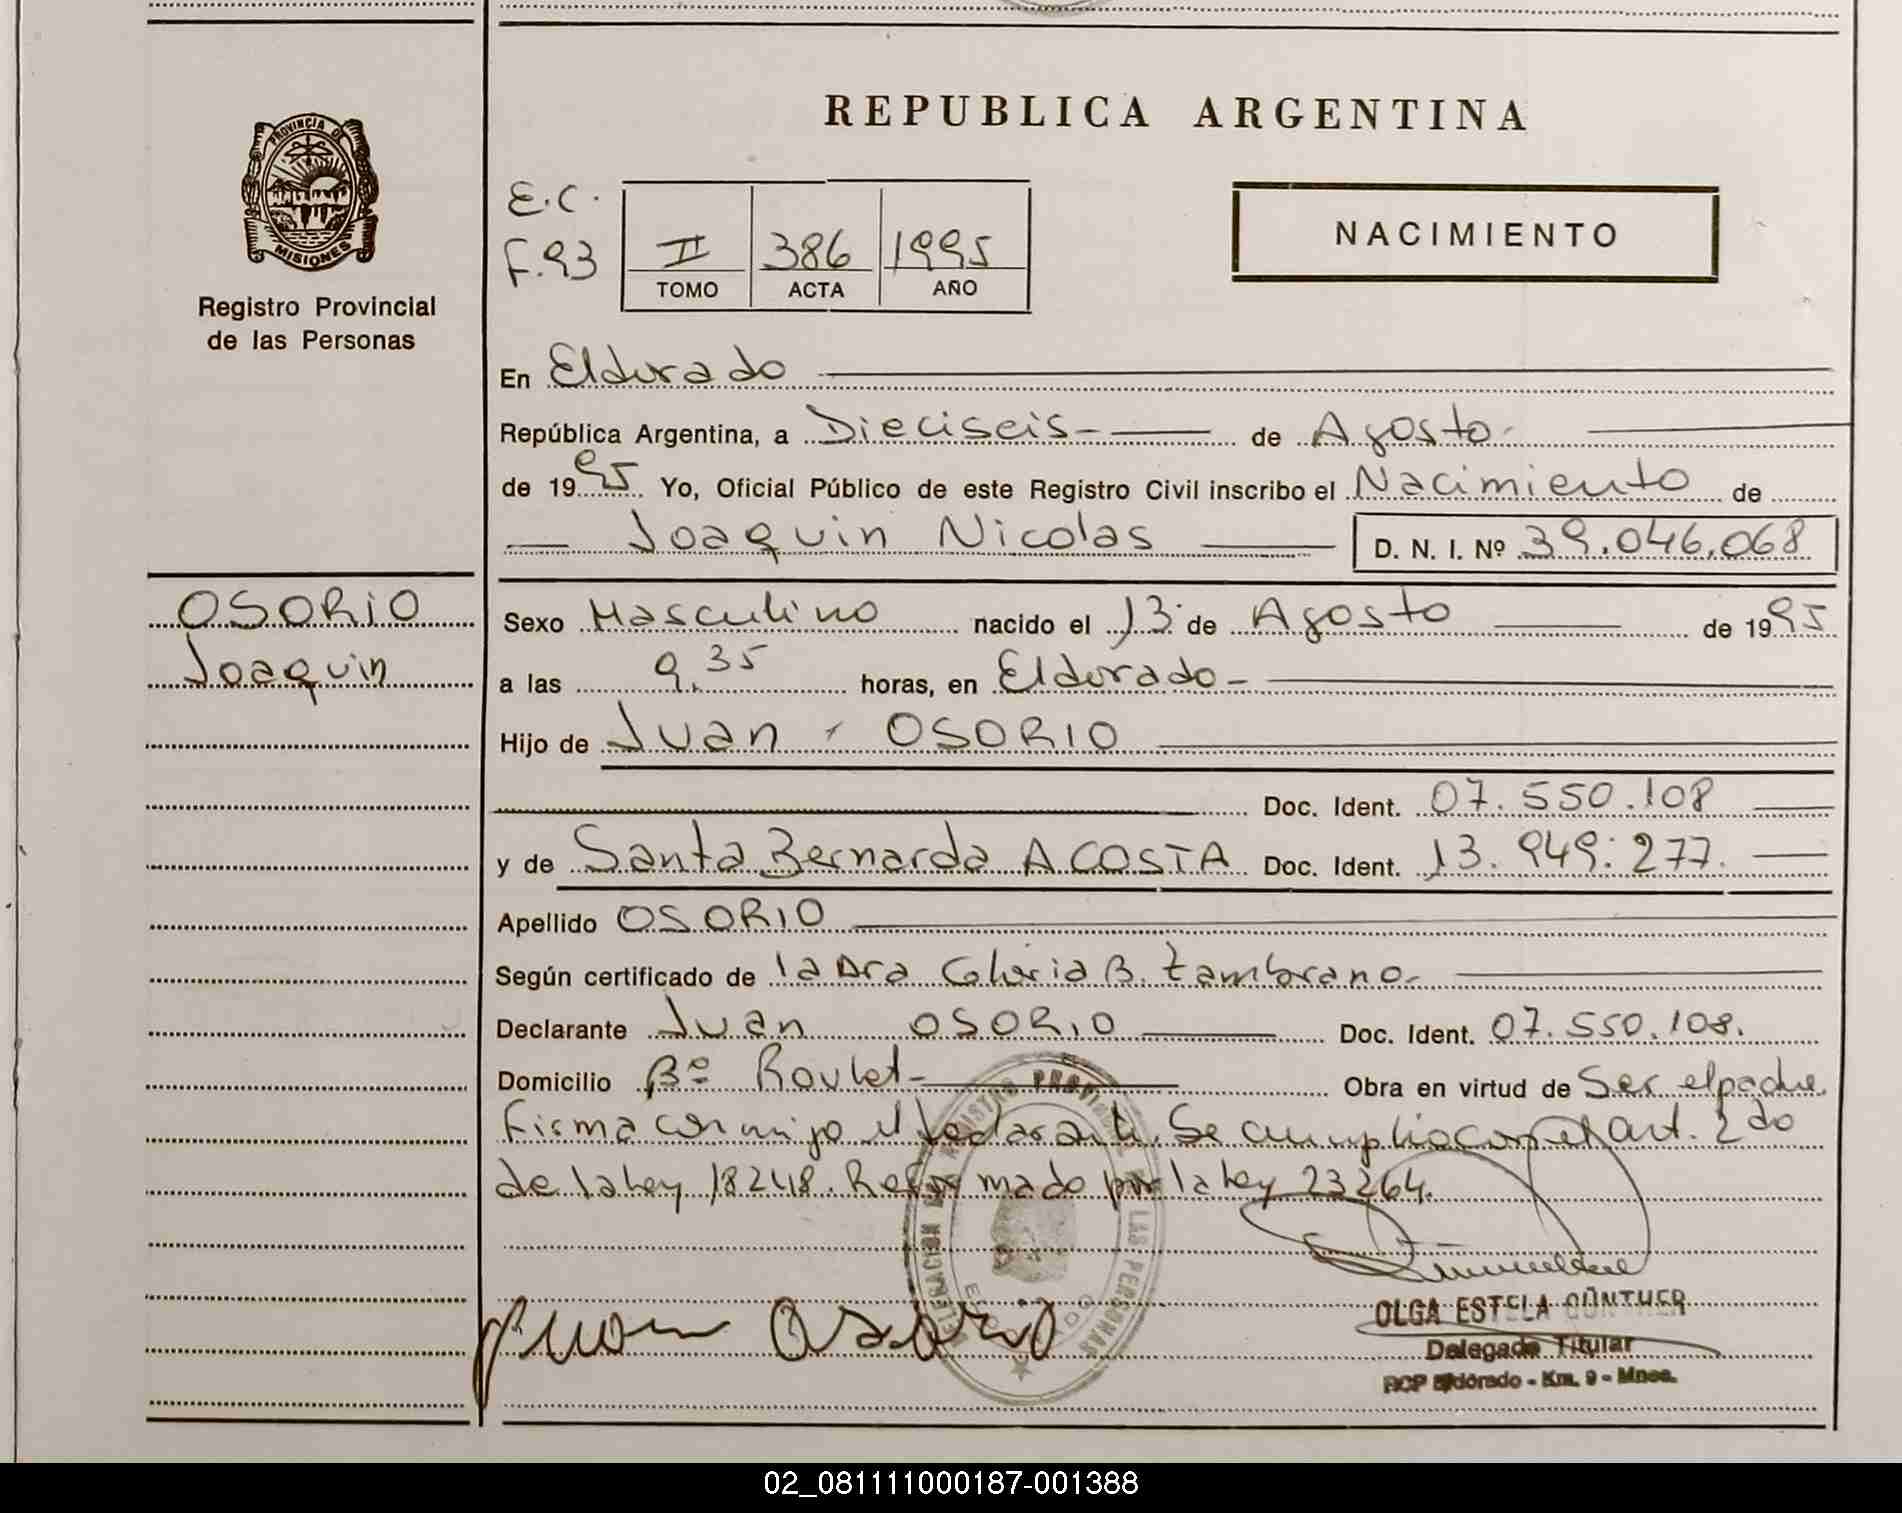 REPUBLICA ARGENTINA
PROVINCIA DE
MISIONES
Registro Provincial
de las Personas
E.C.
F.93
II 386 1995
TOMO ACTA AÑO
NACIMIENTO
En Eldorado
República Argentina, a Dieciseis de Agosto
de 1995 Yo, Oficial Público de este Registro Civil inscribo el Nacimiento de
Joaquin Nicolas D. N. I. Nº 39.046.068
OSORIO
Joaquin
Sexo Masculino nacido el 13 de Agosto de 1995
a las 9,35 horas, en Eldorado
Hijo de Juan OSORIO
Doc. Ident. 07.550.108
y de Santa Bernarda ACOSTA Doc. Ident. 13.949.277.
Apellido OSORIO
Según certificado de la Dra Gloria B. Zambrano
Declarante Juan OSORIO Doc. Ident. 07.550.108.
Domicilio Bº Roulet Obra en virtud de Ser el padre
Firma conmigo el declarante. Se cumplio con el art. 2do
de la Ley 18248. Reformado por la Ley 23264.
Juan Osorio
OLGA ESTELA GÜNTHER
Delegada Titular
RCP Eldorado - Km. 9 - Mnes.
02_081111000187-001388